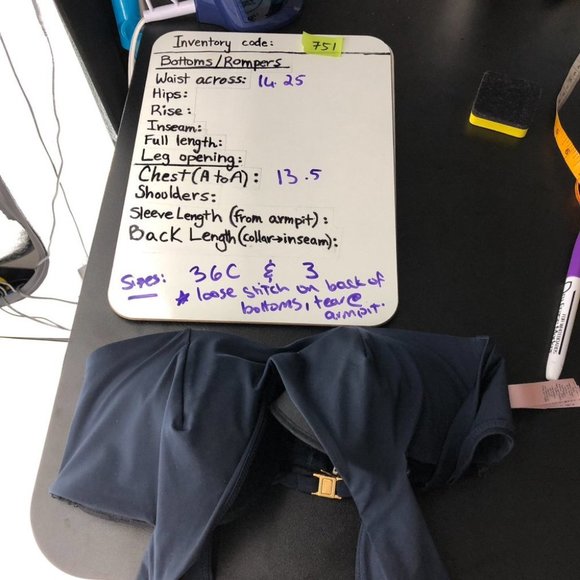 Inventory code: 751
Bottoms/Rompers
Waist across: 14.25
Hips:
Rise:
Inseam:
Full length:
Leg opening:
Chest (A to A): 13.5
Shoulders:
Sleeve Length (from armpit):
Back Length (collar→inseam):
Sizes: 36C & 3
* loose stitch on back of
bottoms, tear @
armpit.